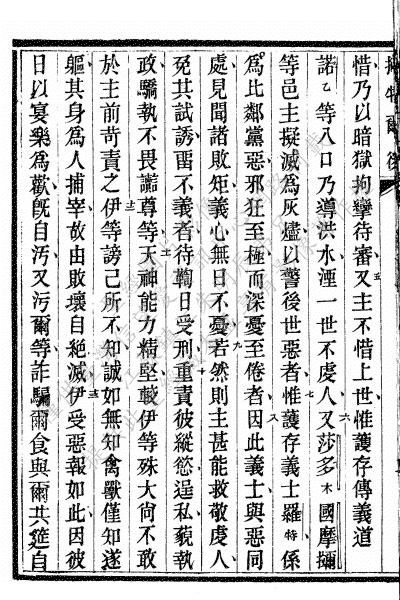 惜乃以暗獄拘攣待審又主不惜上世惟護存傳義道
諾乙等八口乃導洪水湮一世不虔人又莎多木國摩擟
等邑主擬滅為灰燼以警後世惡者惟護存義士羅特係
為比鄰黨惡邪狂至極而深憂至倦者因此義士與惡同
處見聞諸敗矩義心無日不憂若然則主甚能救敬虔人
免其試誘畱不義者待鞫日受刑重責彼縱慾逞私藐執
政驕執不畏讟尊等天神能力精堅較伊等殊大尙不敢
於主前苛責之伊等謗己所不知誠如無知禽獸僅知遂
軀其身為人捕宰故由敗壞自絕滅伊受惡報如此因彼
日以宴樂為歡旣自汚又污爾等詐騙爾食與爾共筵自